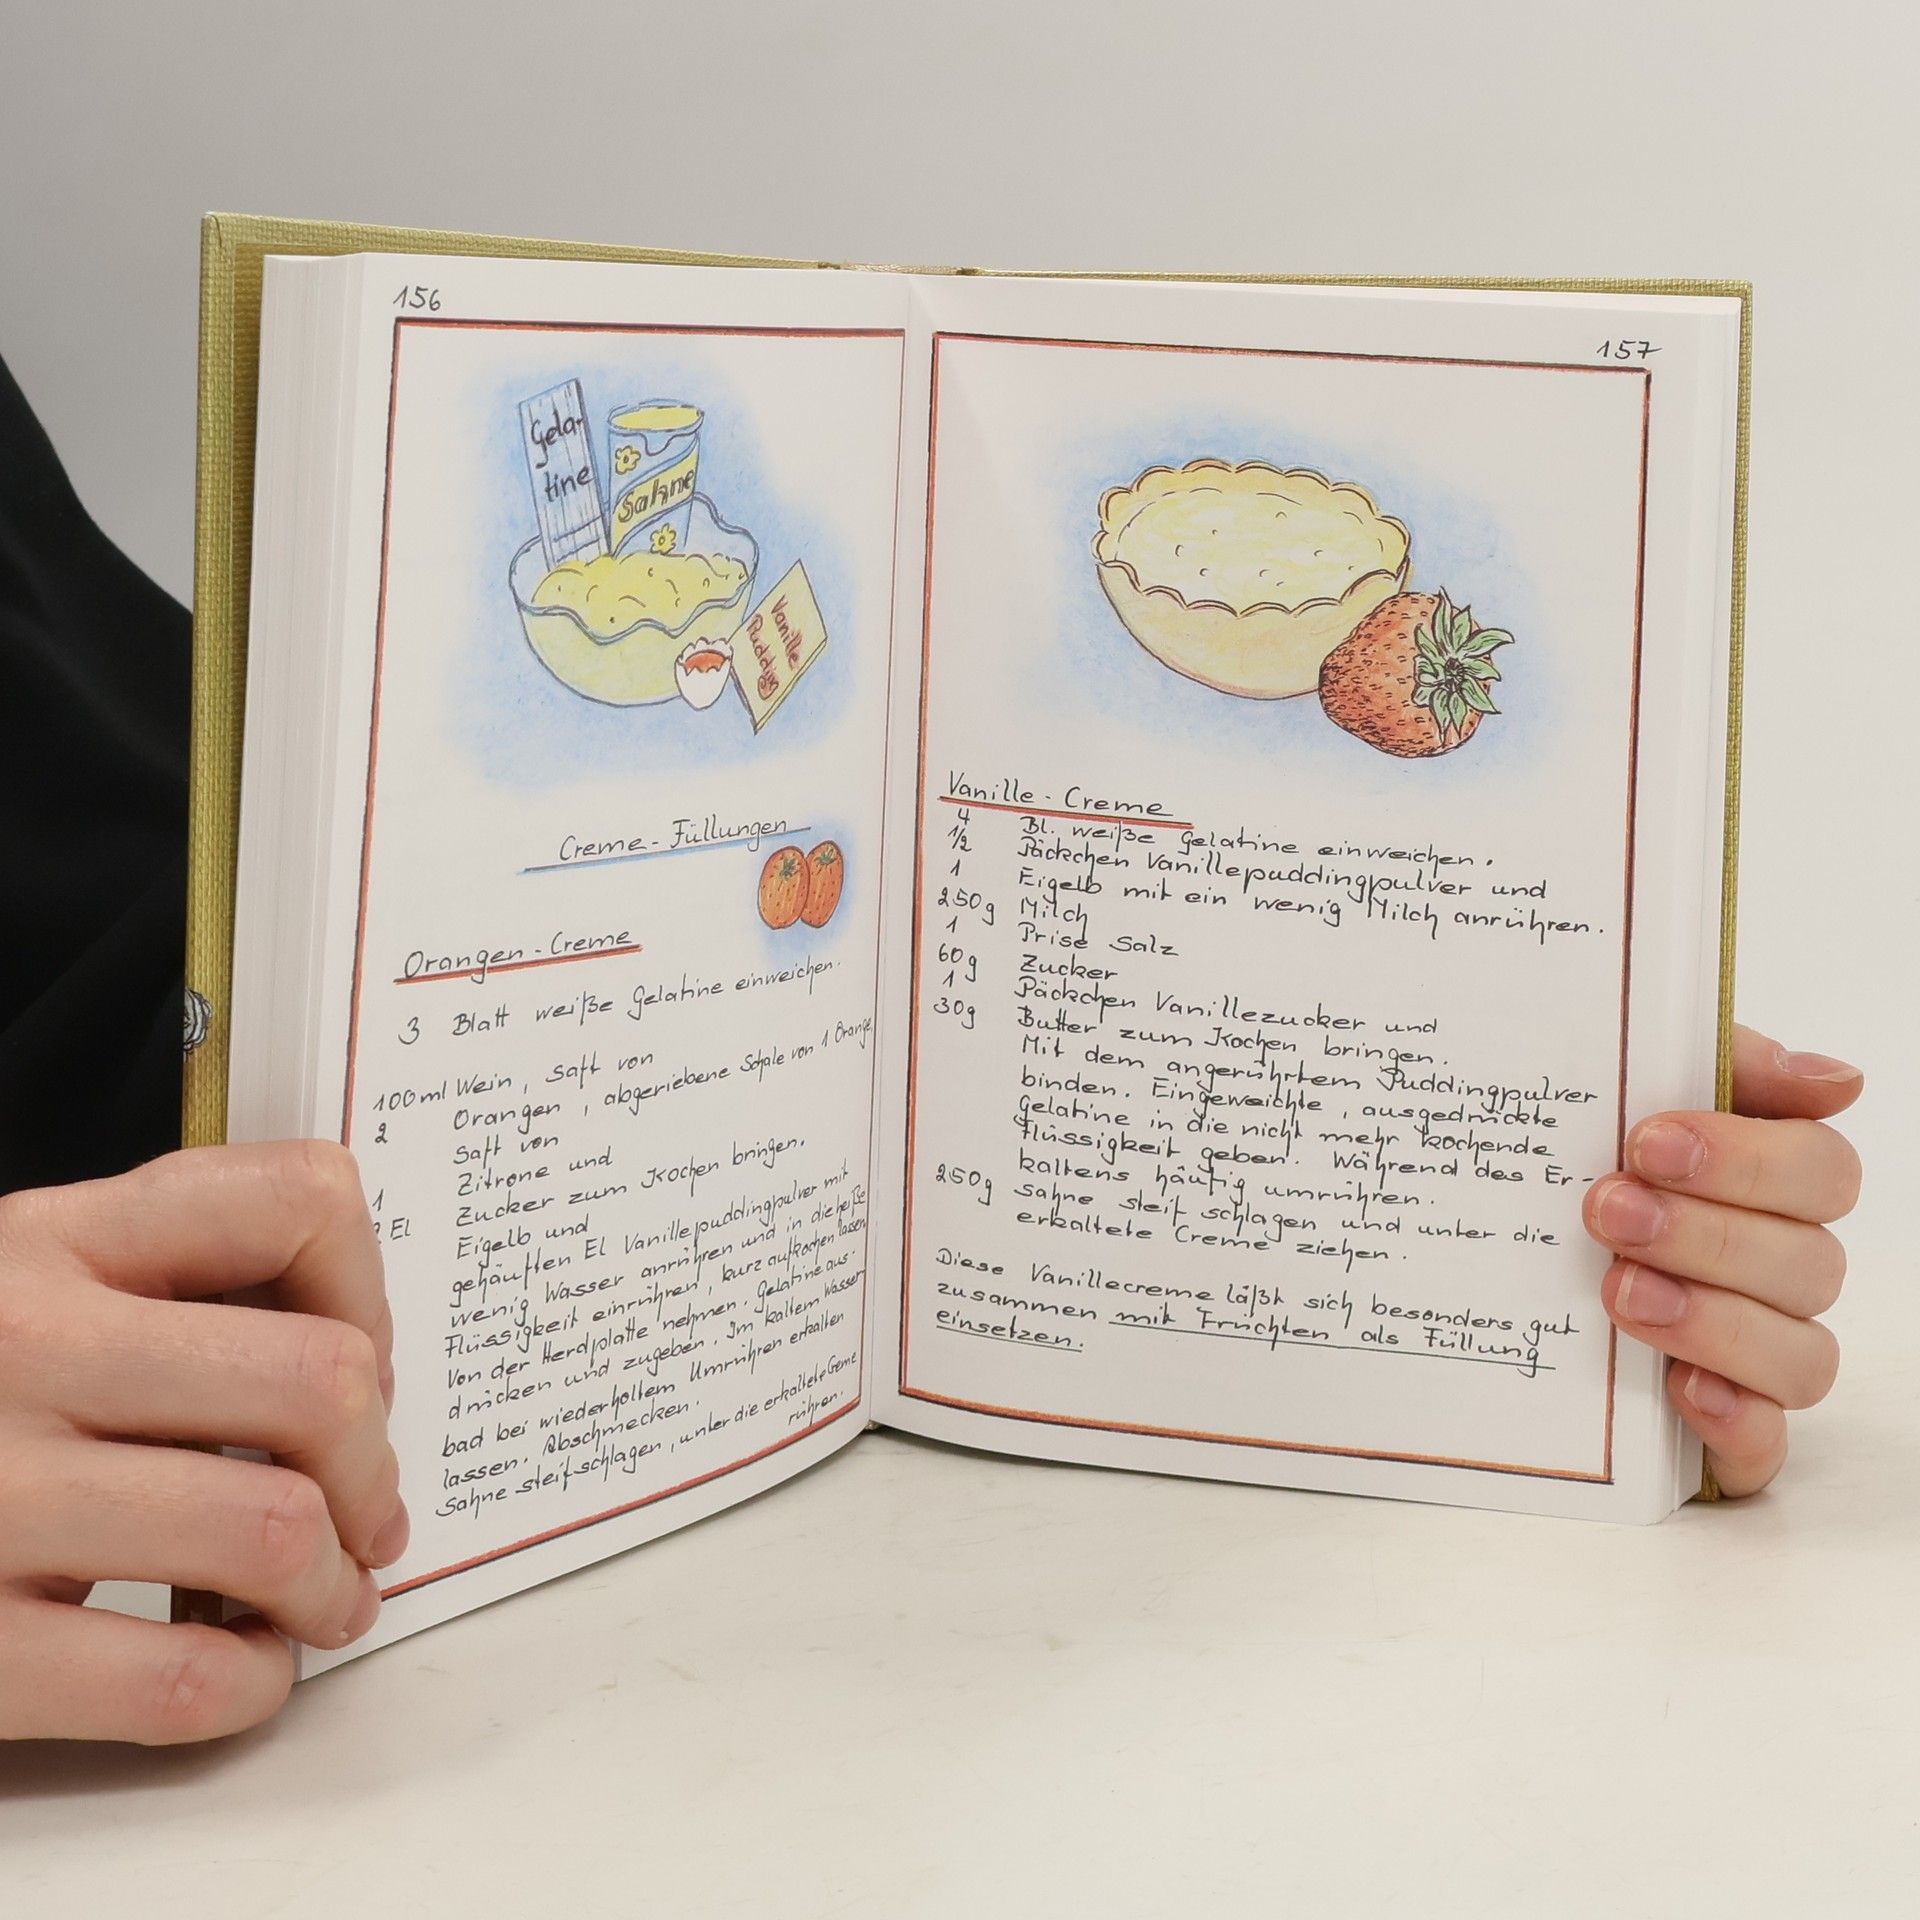 156
Gela-
tine
Sahne
Vanille
Pudding
Creme-Füllungen
Orangen-Creme
3 Blatt weiße Gelatine einweichen.
100ml Wein, Saft von
2 Orangen, abgeriebene Schale von 1 Orange,
Saft von
1 Zitrone und
El Zucker zum Kochen bringen.
Eigelb und
gehäuften El Vanillepuddingpulver mit
wenig Wasser anrühren und in die heiße
Flüssigkeit einrühren, kurz aufkochen lassen.
Von der Herdplatte nehmen. Gelatine aus-
drücken und zugeben. Im kalten Wasser-
bad bei wiederholtem Umrühren erkalten
lassen. Abschmecken.
Sahne steif schlagen, unter die erkaltete Creme
rühren.
157
Vanille-Creme
4 Bl. weiße Gelatine einweichen.
1/2 Päckchen Vanillepuddingpulver und
1 Eigelb mit ein wenig Milch anrühren.
250g Milch
1 Prise Salz
60g Zucker
1 Päckchen Vanillezucker und
30g Butter zum Kochen bringen.
Mit dem angerührtem Puddingpulver
binden. Eingeweichte, ausgedrückte
Gelatine in die nicht mehr kochende
Flüssigkeit geben. Während des Er-
kaltens häufig umrühren.
250g Sahne steif schlagen und unter die
erkaltete Creme ziehen.
Diese Vanillecreme läßt sich besonders gut
zusammen mit Früchten als Füllung
einsetzen.